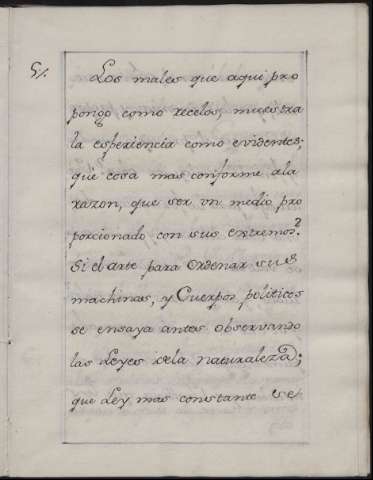 5%
Los males que aqui pro
pongo como recelos, muestra
la esperiencia como evidentes;
que cosa mas conforme ala
razon, que ser vn medio pro
porcionado con sus extremos?
Si el arte para ordenar sus
machinas, y Cuerpos politicos
se ensaya antes observando
las Leyes dela naturaleza;
que Ley mas constante se